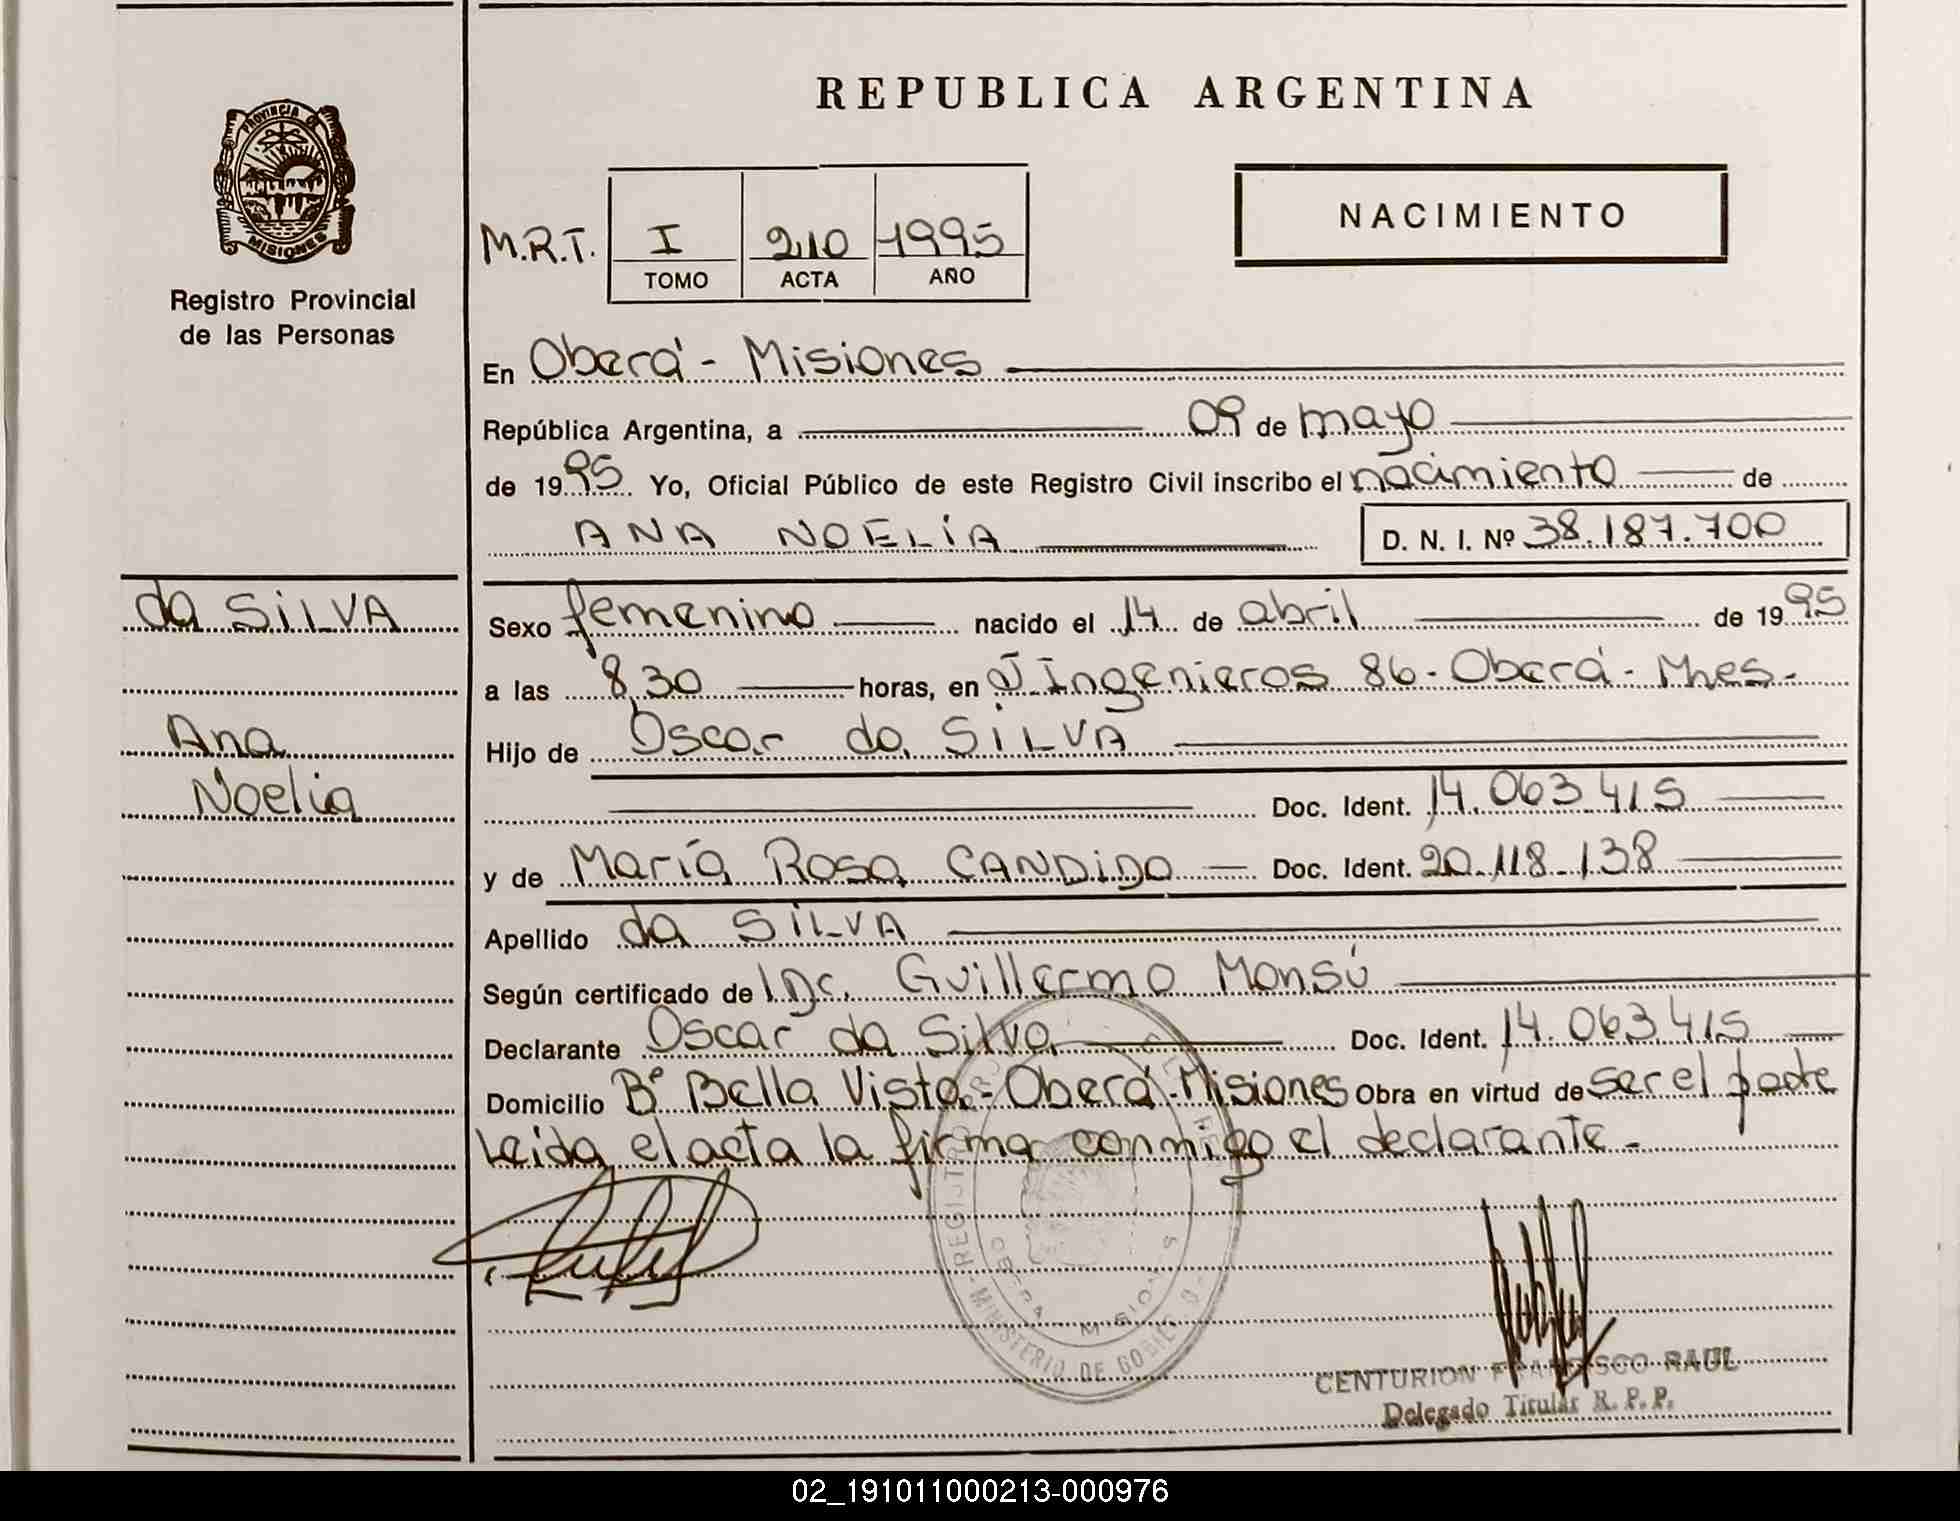 PROVINCIA DE
MISIONES
Registro Provincial
de las Personas
REPUBLICA ARGENTINA
NACIMIENTO
M.R.T. I 210 1995
TOMO ACTA AÑO
En Oberá - Misiones
República Argentina, a 09 de mayo
de 1995 Yo, Oficial Público de este Registro Civil inscribo el nacimiento de
ANA NOELIA D. N. I. Nº 38.187.700
da SILVA
Ana
Noelia
Sexo femenino nacido el 14 de abril de 1995
a las 8,30 horas, en J Ingenieros 86 - Oberá - Mnes.
Hijo de Oscar da SILVA
Doc. Ident. 14.063.415
y de María Rosa CANDIDO Doc. Ident. 20.118.138
Apellido da SILVA
Según certificado de Guillermo Monsú
Declarante Oscar da Silva Doc. Ident. 14.063.415
Domicilio Bº Bella Vista - Oberá - Misiones Obra en virtud de ser el padre
Leida el acta la firma conmigo el declarante -
REGISTRO
OBERA MISIONES
MINISTERIO DE GOBIERNO
CENTURION FRANCISCO RAUL
Delegado Titular R. P. P.
02_191011000213-000976